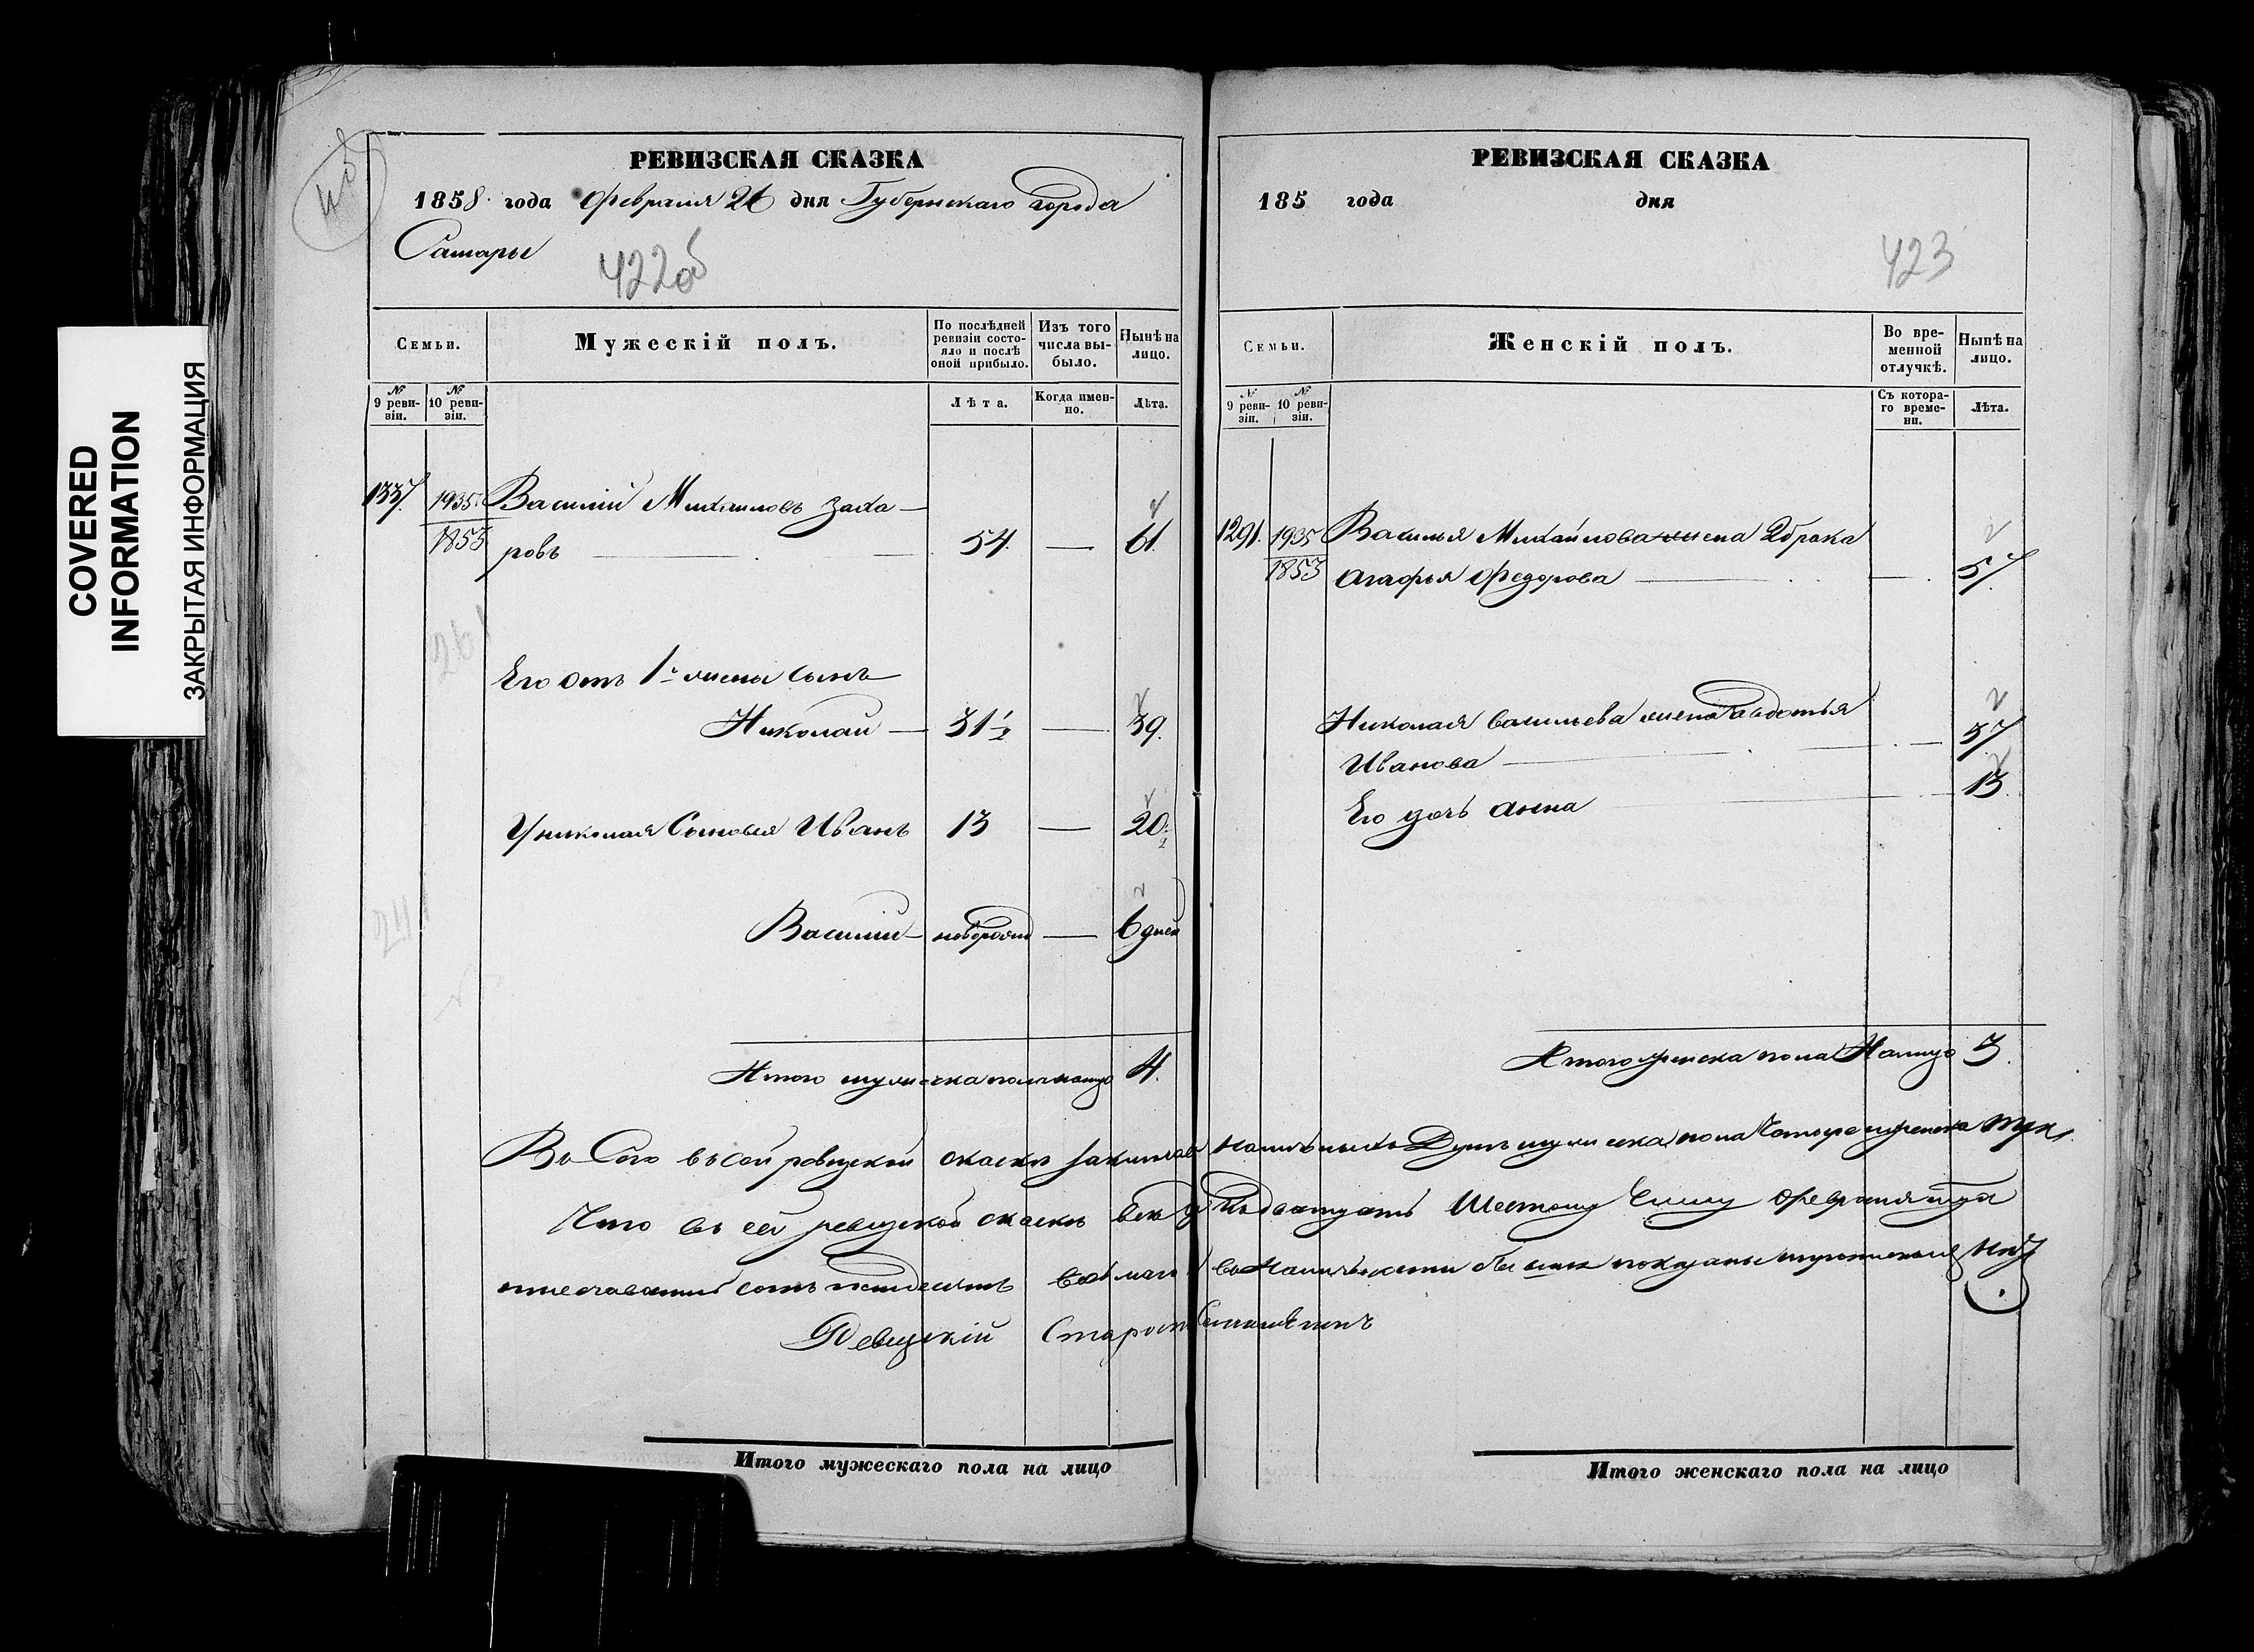 COVERED
INFORMATION
ЗАКРЫТАЯ ИНФОРМАЦИЯ
РЕВИЗСКАЯ СКАЗКА
1858 года Февраля 26 дня Губернскаго города
Самары
422об
Семьи.
Мужескій полъ.
По послѣдней
ревизіи состо-
яло и послѣ
оной прибыло.
Изъ того
числа вы-
было.
Нынѣ на
лицо.
№
9 реви-
зіи.
№
10 реви-
зіи.
Лѣта.
Когда имен-
но.
Лѣта.
1337. 1935. Василий Михаиловъ Заха-
1853 ровъ 54. — 61.
Его отъ 1й жены сынъ
Николай — 31 1/2 — 39.
У николая Сыновья Иванъ 13 — 20.
Василий — новорожд — 6 дней
Итого мужеска пола налицо 4.
РЕВИЗСКАЯ СКАЗКА
185 года дня
423
Семьи.
Женскій полъ.
Во вре-
менной
отлучкѣ.
Нынѣ на
лицо.
№
9 реви-
зіи.
№
10 реви-
зіи.
Съ котора-
го време-
ни.
Лѣта.
1291. 1935 Василья Михайлова жена 2 брака
1853 Агафья Федорова — 57.
Николая Васильева жена Авдотья
Иванова — 37
Его дочь анна 13
Итого женска пола Налицо 3.
Во Сего въ сей ревизской сказки заключае наличныхъ Душъ мужеска пола Четыре женска три
Что въ сей ревизской сказки все Двадцать Шестому Числу Февраля
восемьсотъ пятдесятъ
Ревизский Старост
Итого мужескаго пола на лицо
Итого женскаго пола на лицо